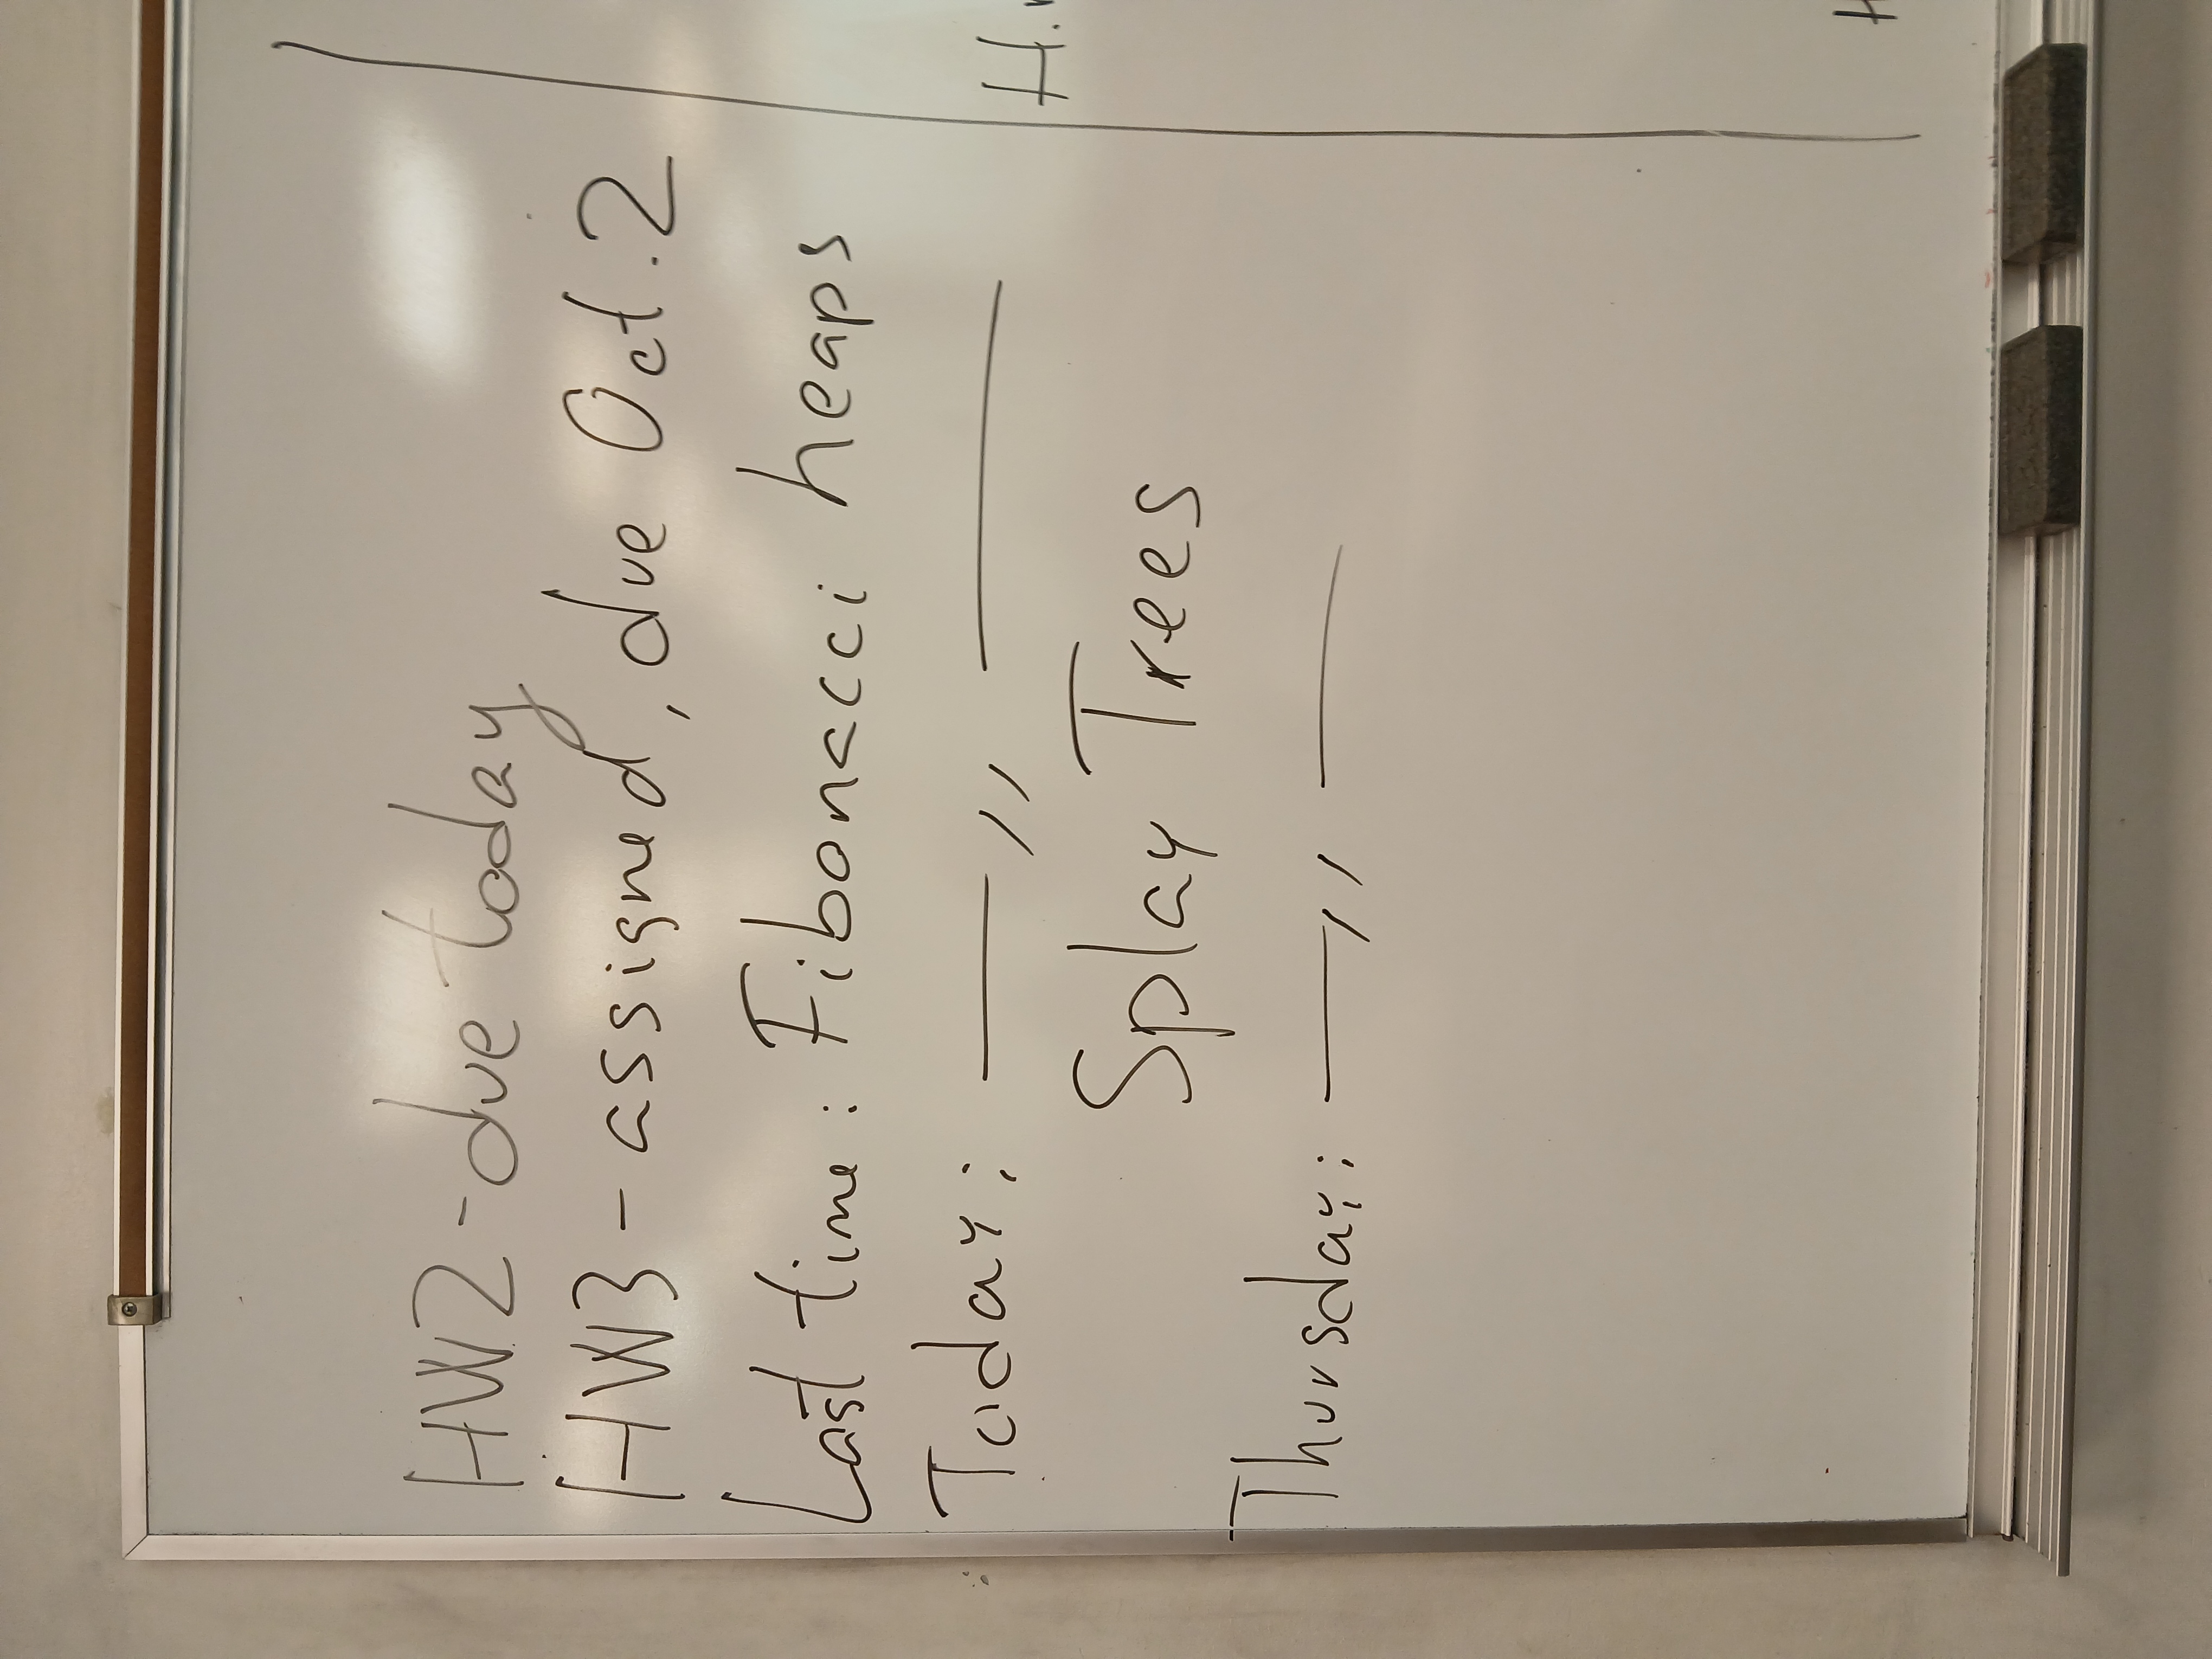 HW2 - due today
HW3 - assigned, due Oct. 2
Last time: Fibonacci heaps
Today: — ,, —
Splay Trees
Thursday: — ,, —
H.